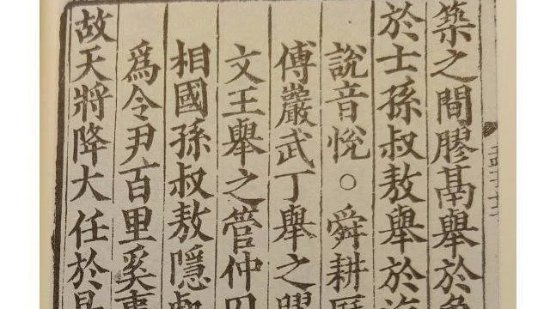 築之間膠鬲舉於魚
於士孫叔敖舉於海
說音悅○舜耕歷
傅巖武丁舉之膠
文王舉之管仲囚
相國孫叔敖隱
爲令尹百里奚事
故天將降大任於是